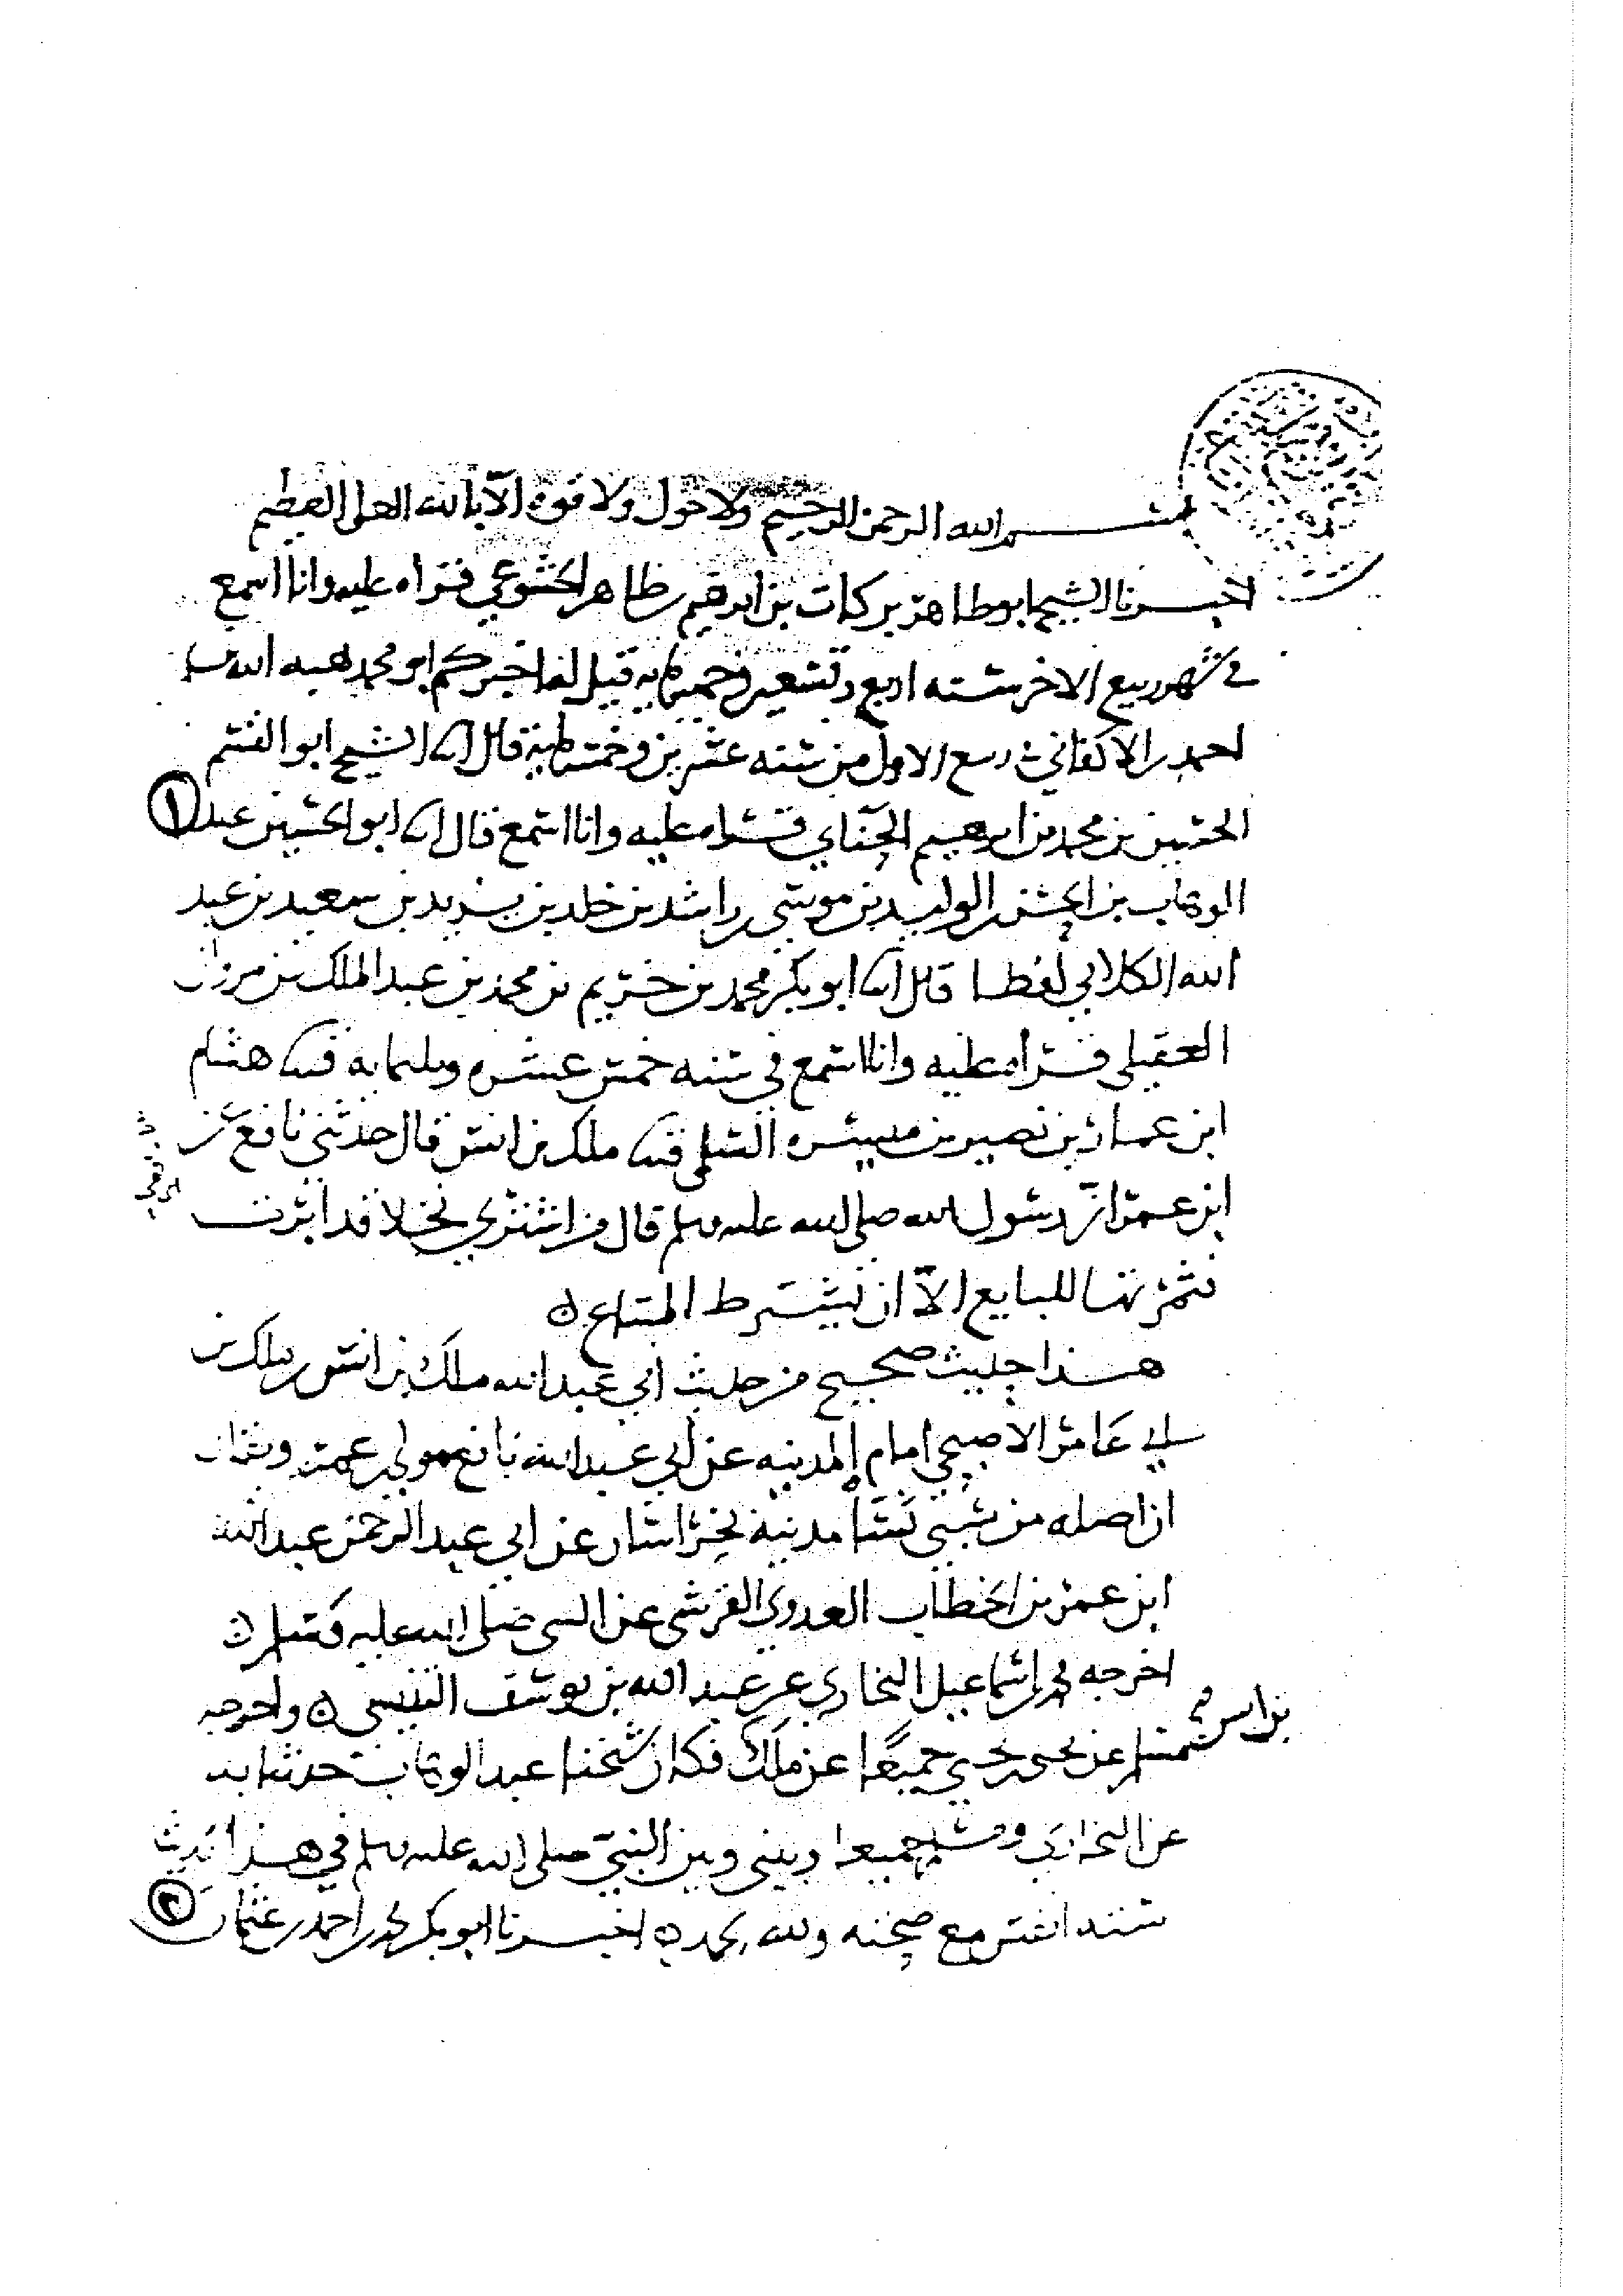 بسم الله الرحمن الرحيم ولا حول ولا قوة الا بالله العلي العظيم
اخبرنا الشيخ ابو طاهر بركات بن ابرهيم بن طاهر الخشوعي قراه عليه وانا اسمع
في شهر ربيع الاخر سنه اربع وتسعين وخمس مايه قيل له اخبركم ابو محمد هبه الله بن
احمد بن الاكفاني في ربيع الاول من سنه عشرين وخمسمايه قال انا الشيخ ابو القسم
الحسين بن محمد بن ابرهيم الحنائي قراه عليه وانا اسمع قال انا ابو الحسين عبد
١
الوهاب بن الحسن بن الوليد بن موسى بن راشد بن خلد بن يزيد بن سعيد بن عبد
الله الكلابي لفظا قال انا ابو بكر محمد بن خريم بن محمد بن عبد الملك بن مروان
العقيلي قراه عليه وانا اسمع في سنه خمس عشره وثلثمايه قثنا هشام
ابن عمار بن نصير بن ميسره السلمي قثنا ملك بن انس قال حدثني نافع عن
ابن عمر ان رسول الله صلى الله عليه وسلم قال من اشترى نخلا قد ابرت
فثمرتها للبايع الا ان يشترط المبتاع ه
هذا حديث صحيح من حديث ابي عبد الله ملك بن انس بن ملك بن
ابي عامر الاصبحي امام المدينه عن ابي عبد الله نافع مولى بن عمر
ان اصله من سبي نسا مدينة بخراسان عن ابي عبد الرحمن عبد الله
ابن عمر بن الخطاب العدوي القرشي عن النبي صلى الله عليه وسلم ه
اخرجه محمد بن اسماعيل البخاري عن عبد الله بن يوسف التنيسي ه واخرجه
مسلم عن يحيى بن يحيى جميعا عن ملك فكان شيخنا عبد الوهاب حدثنا به
عن البخاري ومسلم جميعا وبيني وبين النبي صلى الله عليه وسلم في هذا الحديث
سته انفس مع صحته ولله الحمد ه اخبرنا ابو بكر محمد بن احمد بن عثمان
٢